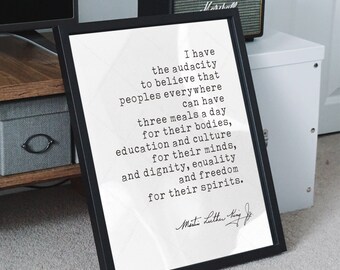 Marshall
I have
the audacity
to believe that
peoples everywhere
can have
three meals a day
for their bodies,
education and culture
for their minds,
and dignity, equality
and freedom
for their spirits.
Martin Luther King Jr